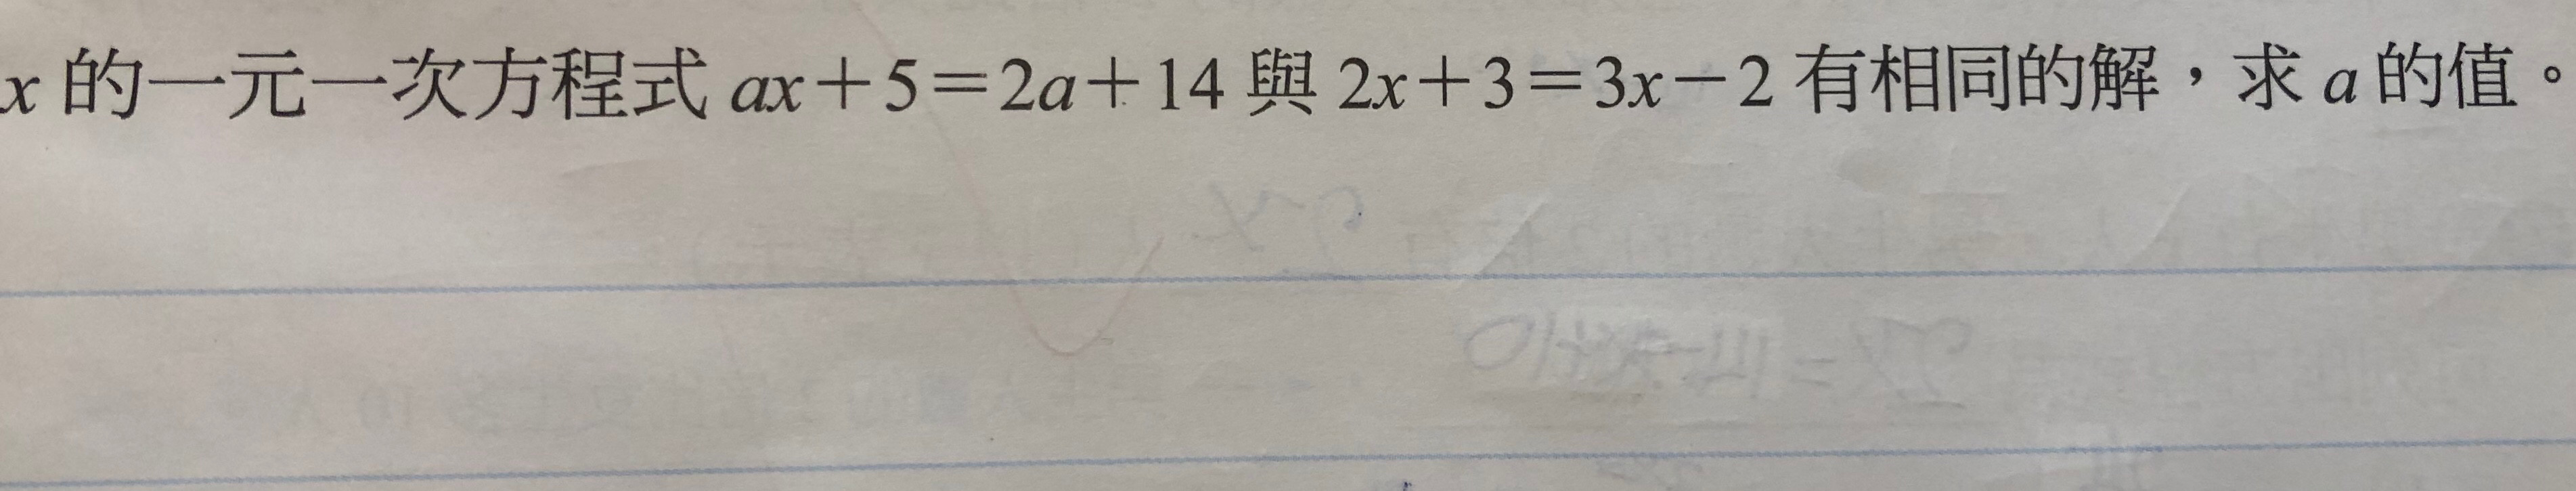 x 的一元一次方程式 ax+5=2a+14 與 2x+3=3x-2 有相同的解，求 a 的值。